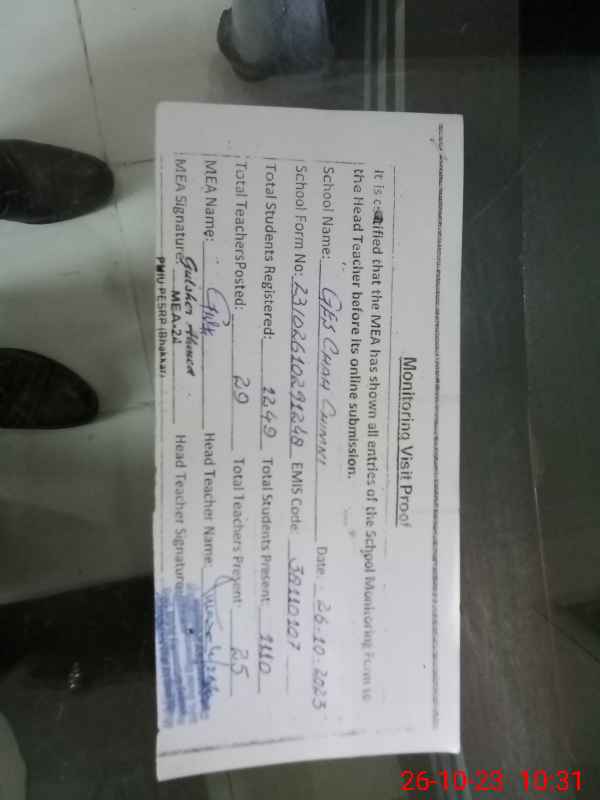 Monitoring Visit Proof
It is certified that the MEA has shown all entries of the School Monitoring Form to
the Head Teacher before its online submission.
School Name: GES CHAH CHIMNI Date: 26-10-2023
School Form No: 23102610291248 EMIS Code: 38110107
Total Students Registered: 1249 Total Students Present: 1110
Total TeachersPosted: 29 Total Teachers Present: 25
MEA Name: Head Teacher Name:
MEA Signature: Gulsher Ahmed Head Teacher Signature:
MEA-21
PMIU-PESRP (Bhakkar)
26-10-23 10:31